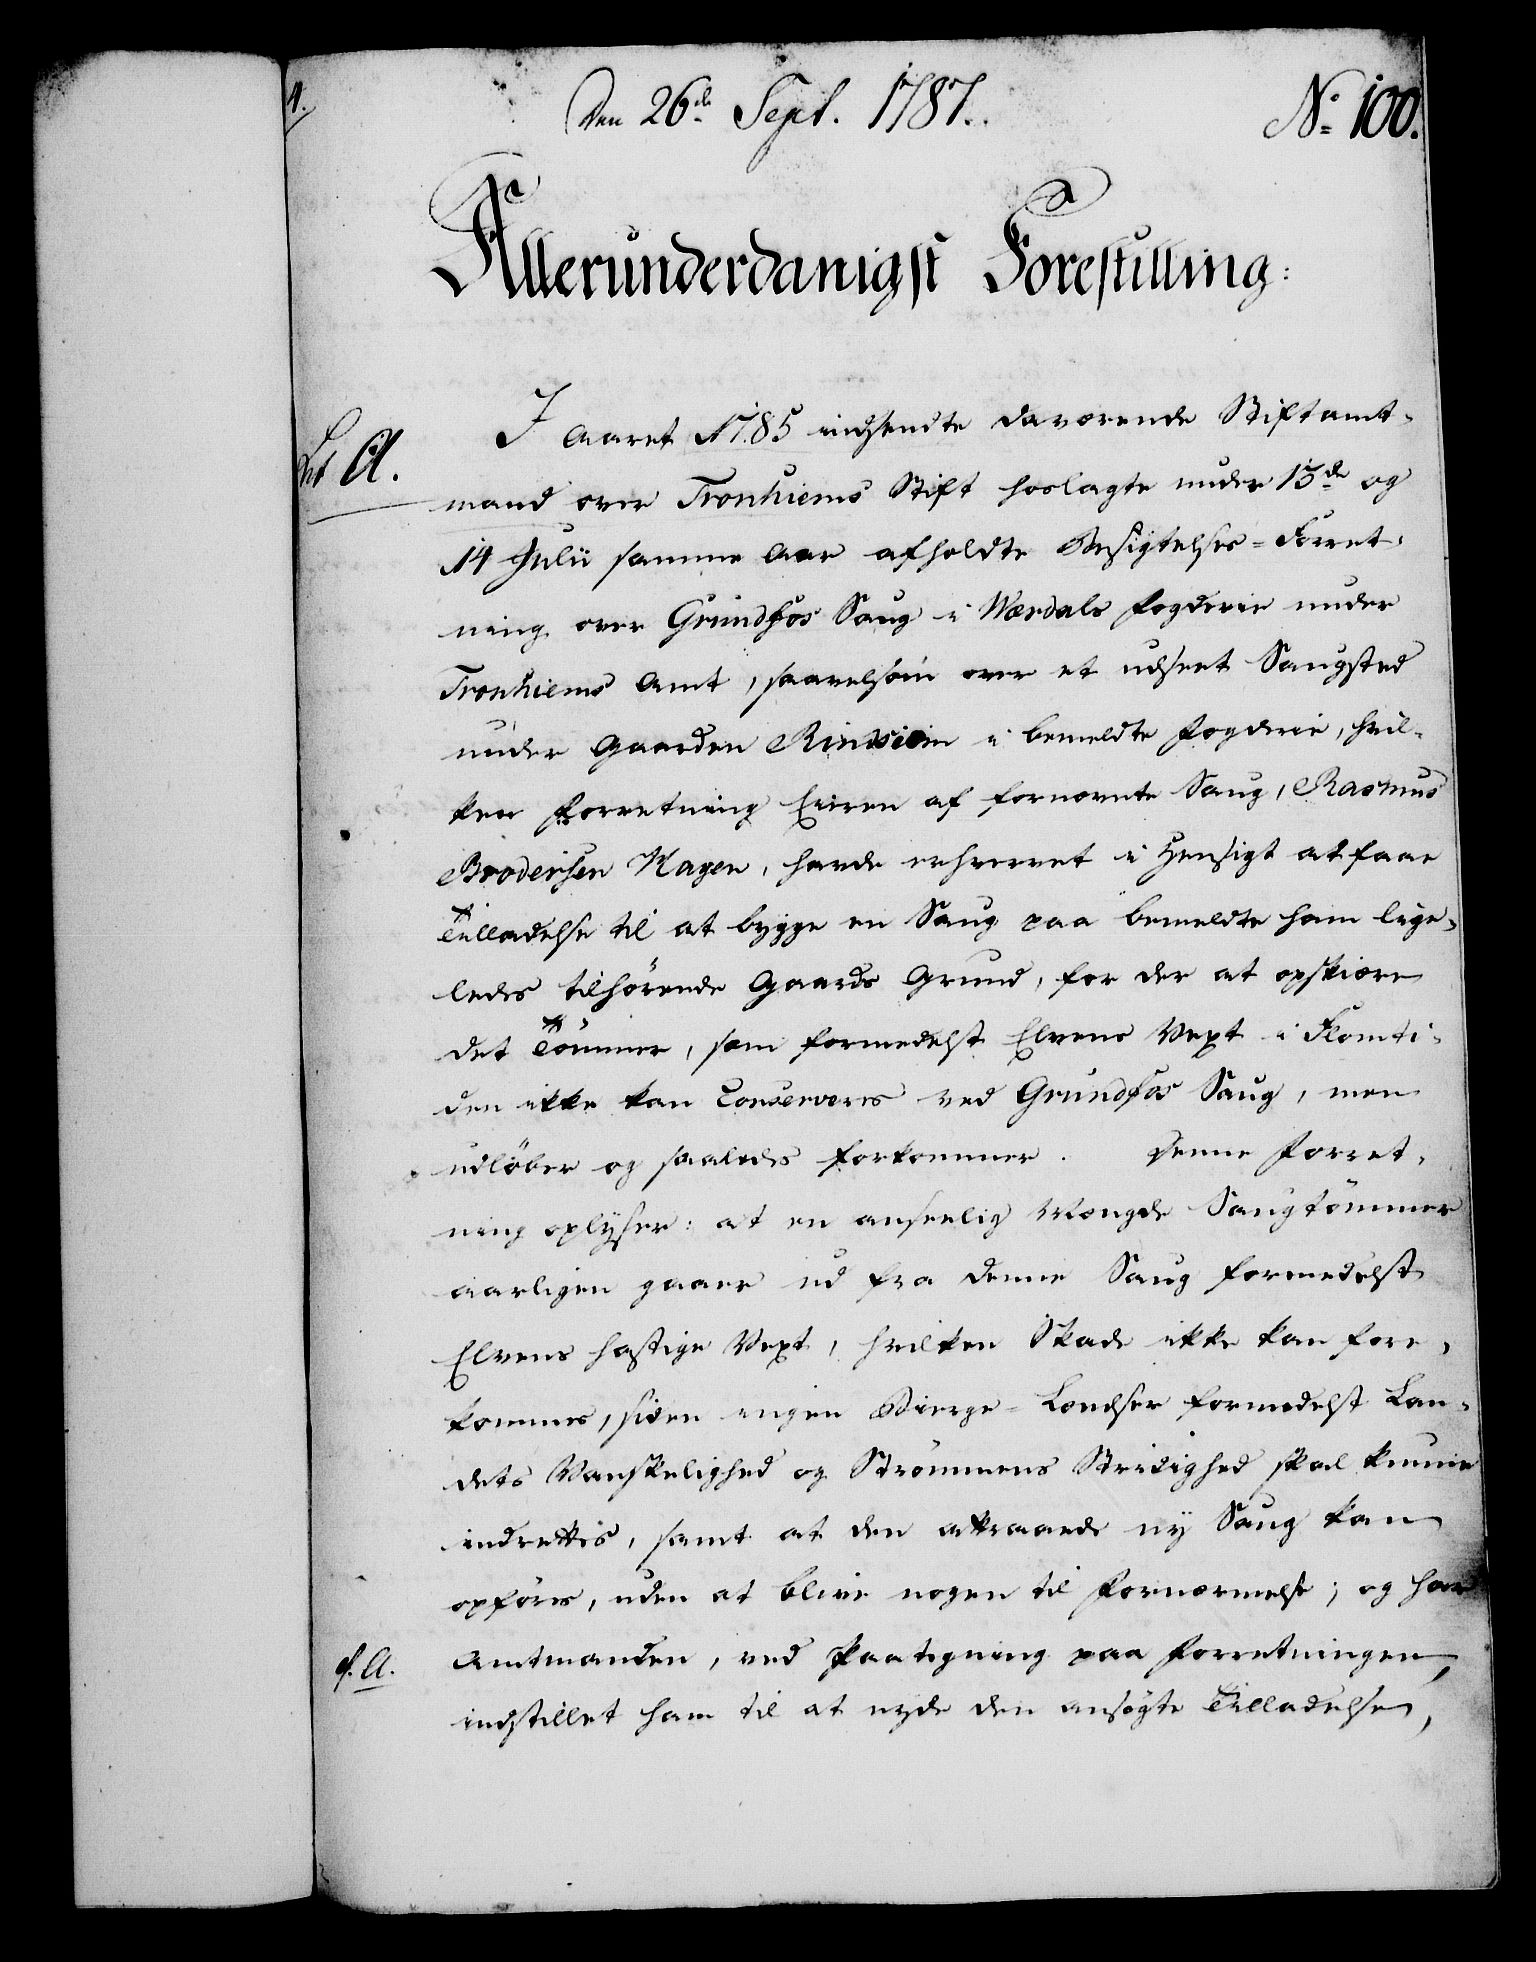 4.
Den 26de Sept. 1787.
No 100.
Allerunderdanigst Forestilling:
Lit A.
I Aaret 1785 indsendte daværende Stiftamt-
mand over Tronhiems Stift hoslagte under 13de og
14 Julii samme Aar afholdte Besigtelses-Forret-
ning over Grundfos Saug i Værdals Fogderie under
Tronhiems Amt, saavelsom over et udseet Saugsted
under Gaarden i bemeldte Fogderie, hvil-
ken Forretning Eieren af fornævnte Saug, Rasmus
Brodersen Hagen, havde erhvervet i Hensigt at faae
Tilladelse til at bygge en Saug paa bemeldte ham lige-
ledes tilhørende Gaards Grund, for der at opskiære
det Tömmer, som formedelst Elvens Vext i Flomti-
den ikke kan Conserveres ved Grundfos Saug, men
udløber og saaledes forkommer. Denne Forret-
ning oplyser: at en anseelig Mængde Saugtömmer
aarligen gaaer ud fra denne Saug formedelst
Elvens hastige Vext, hvilken Skade ikke kan fore-
kommes, siden ingen Bierge-Lændser formedelst Lan-
dets Vanskelighed og Strömmens Stridighed skal kunne
indrettes, samt at den attraaede ny Saug kan
opföres, uden at blive nogen til Fornærmelse; og har
f. A.
Amtmanden, ved Paategning paa Forretningen,
indstillet ham til at nyde den ansögte Tilladelse,